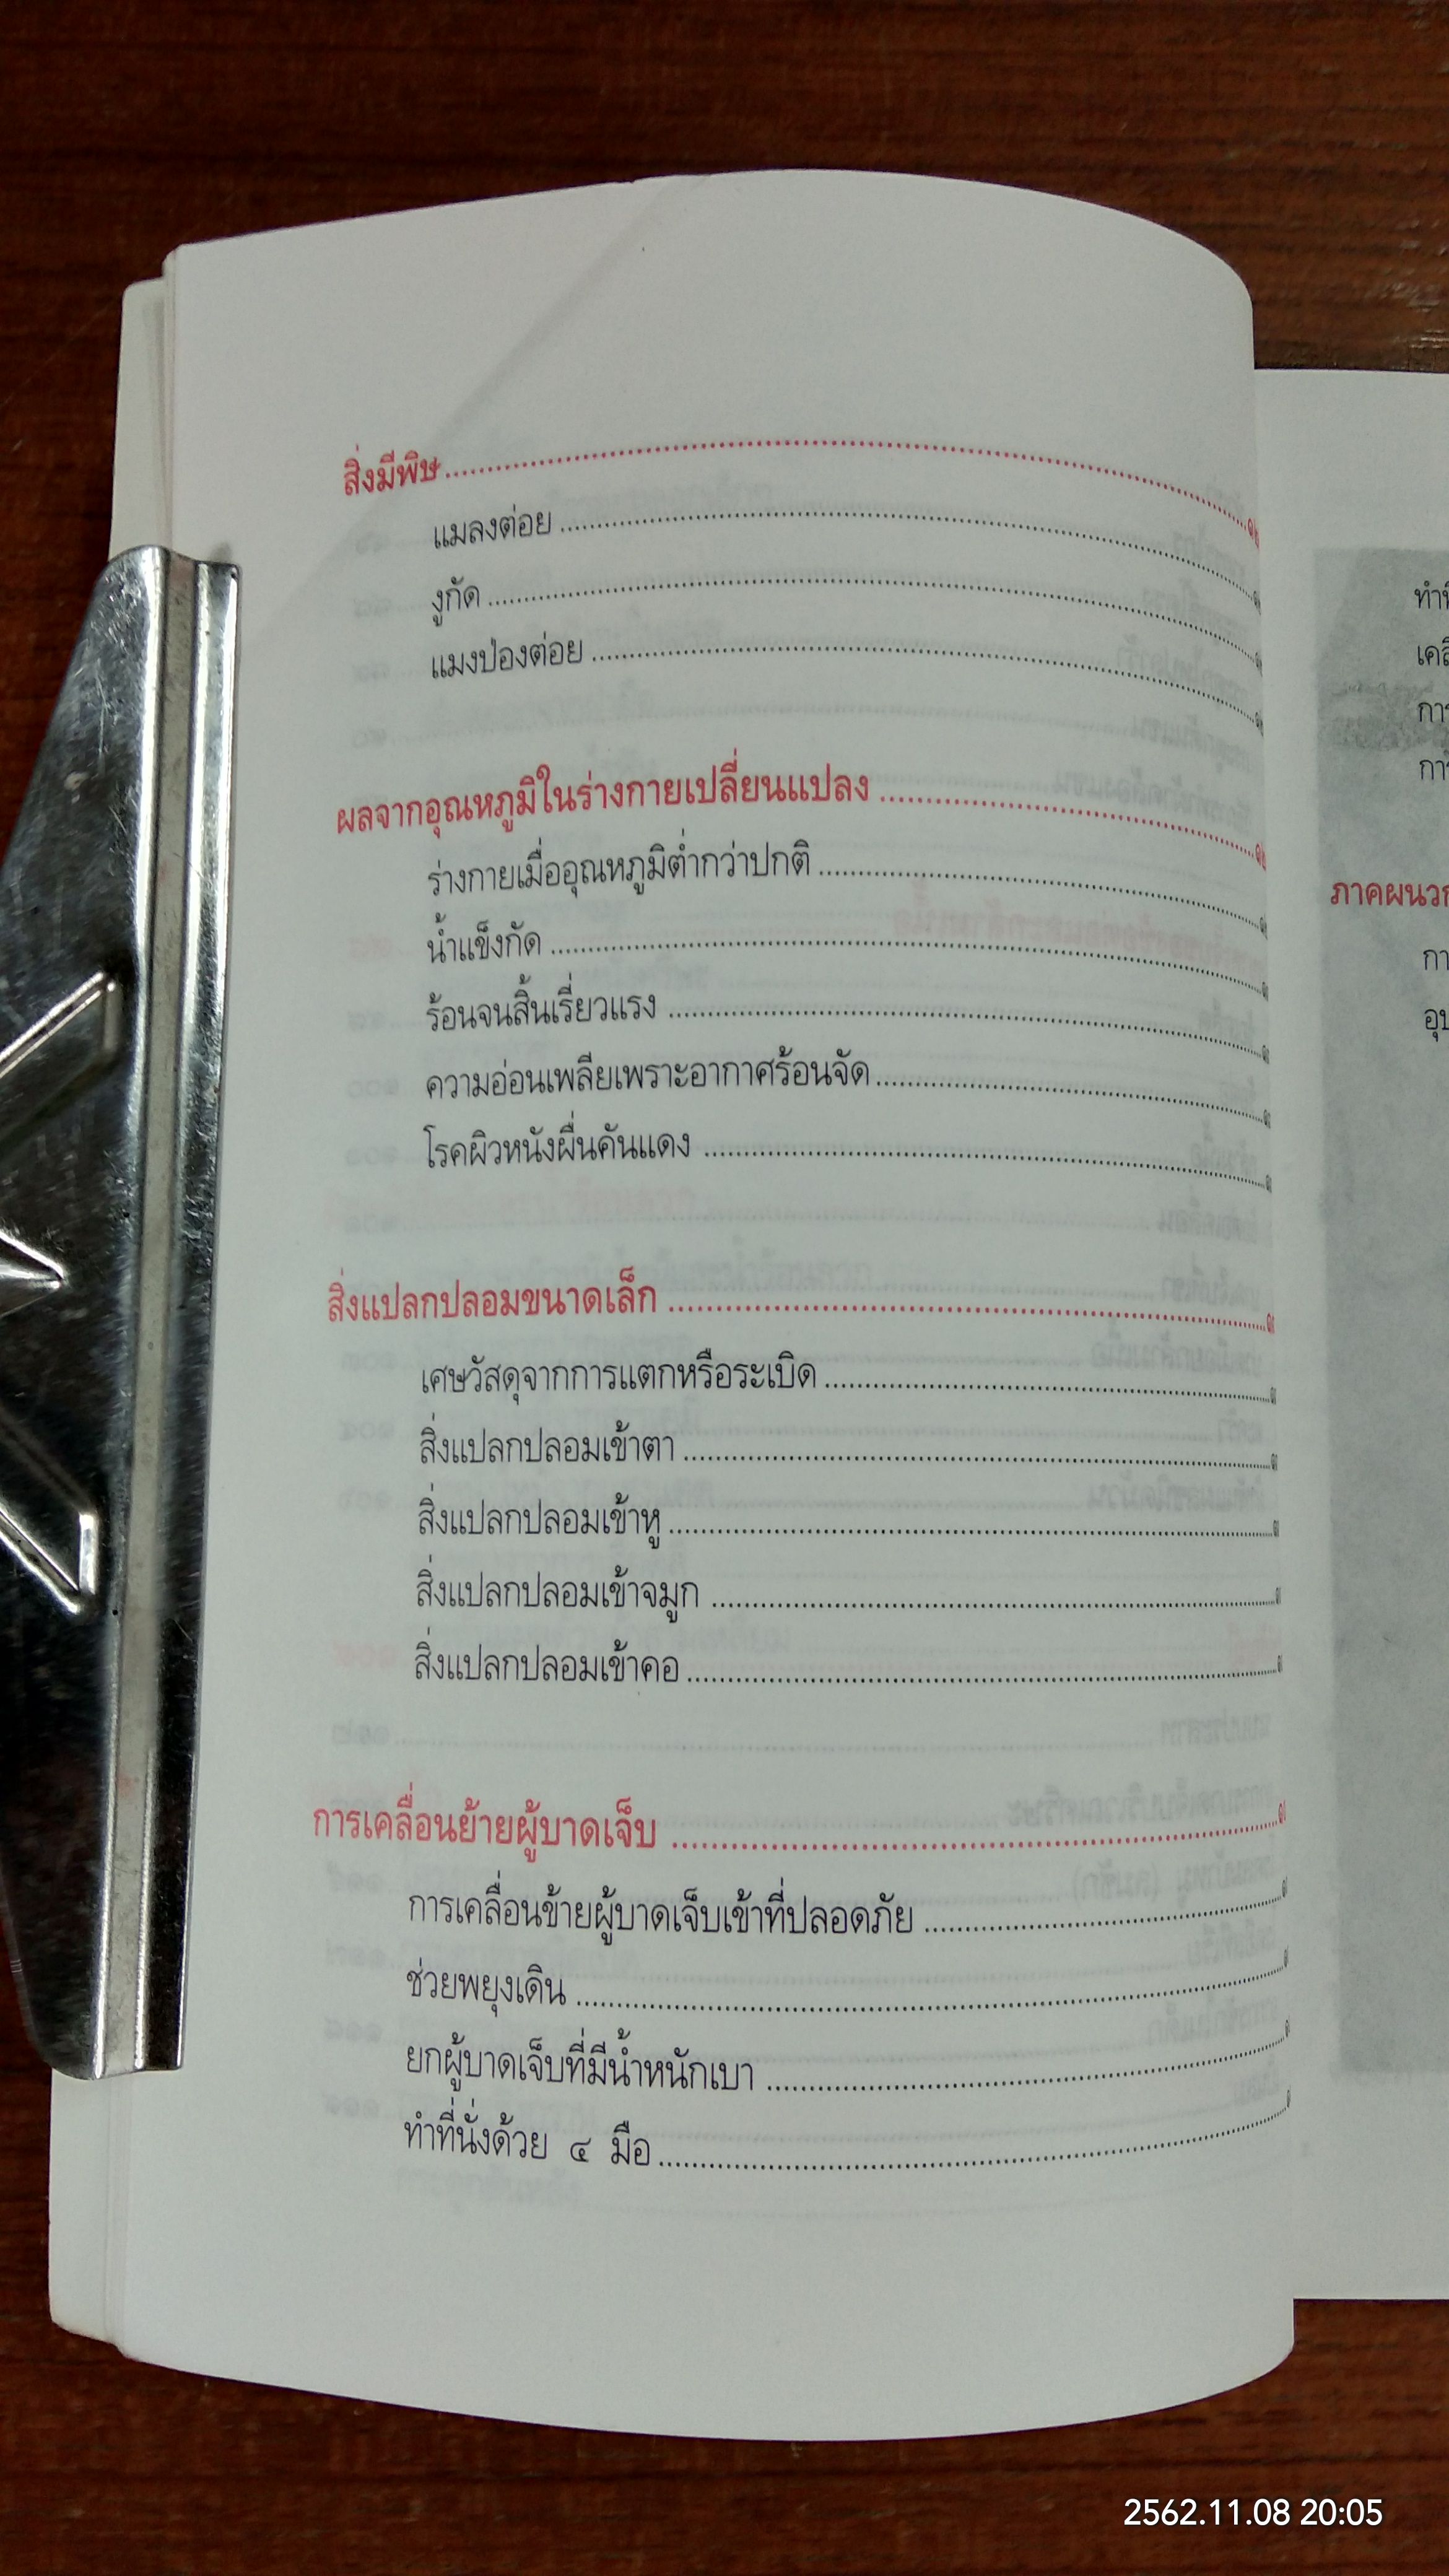 สิ่งมีพิษ
แมลงต่อย
งูกัด
แมงป่องต่อย
ผลจากอุณหภูมิในร่างกายเปลี่ยนแปลง
ร่างกายเมื่ออุณหภูมิต่ำกว่าปกติ
น้ำแข็งกัด
ร้อนจนสิ้นเรี่ยวแรง
ความอ่อนเพลียเพราะอากาศร้อนจัด
โรคผิวหนังผื่นคันแดง
สิ่งแปลกปลอมขนาดเล็ก
เศษวัสดุจากการแตกหรือระเบิด
สิ่งแปลกปลอมเข้าตา
สิ่งแปลกปลอมเข้าหู
สิ่งแปลกปลอมเข้าจมูก
สิ่งแปลกปลอมเข้าคอ
การเคลื่อนย้ายผู้บาดเจ็บ
การเคลื่อนข้ายผู้บาดเจ็บเข้าที่ปลอดภัย
ช่วยพยุงเดิน
ยกผู้บาดเจ็บที่มีน้ำหนักเบา
ทำที่นั่งด้วย ๔ มือ
ภาคผนวก
2562.11.08 20:05